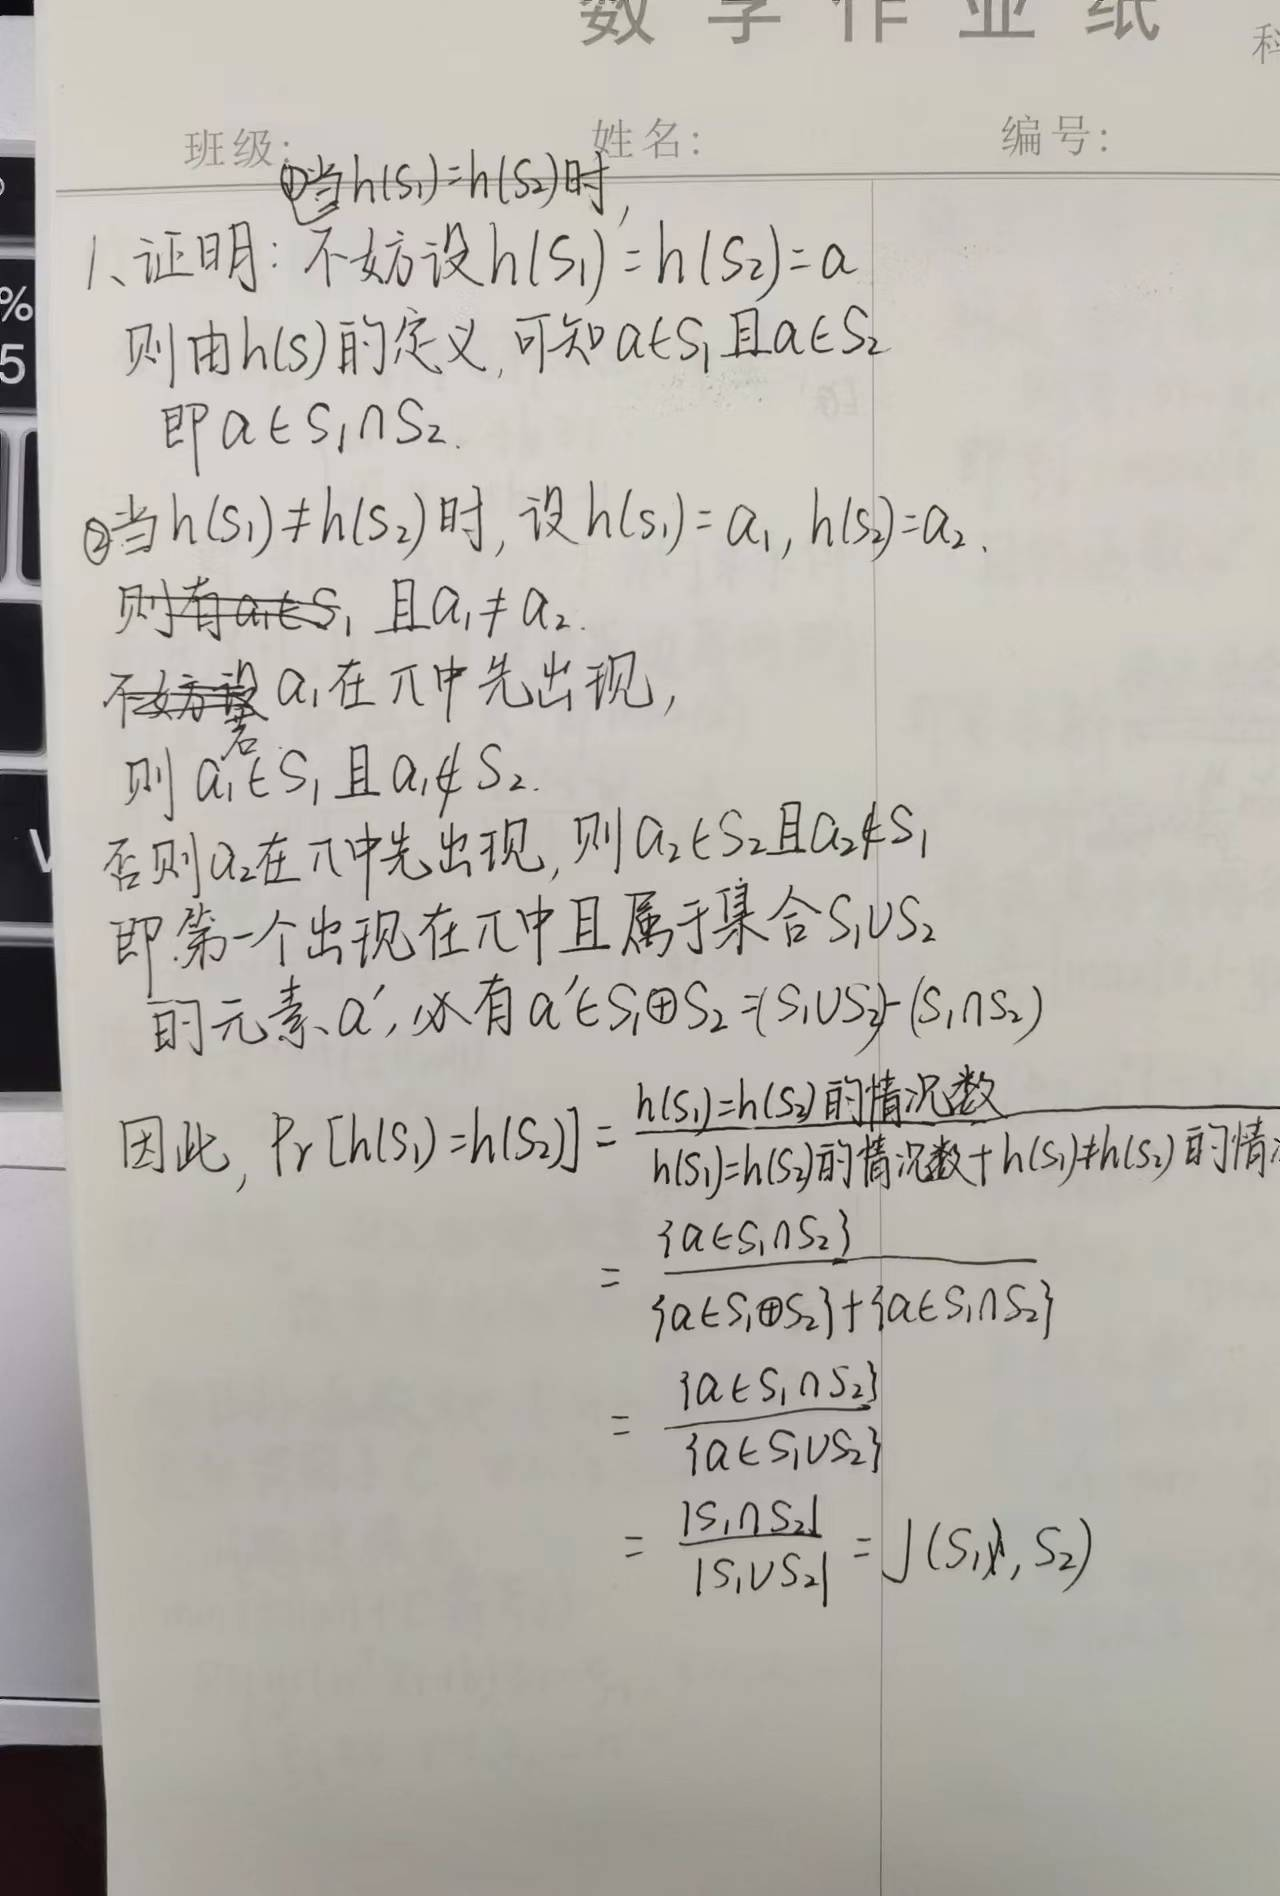 数学作业纸
科
班级:
姓名:
编号:
①当h(S₁)=h(S₂)时,
1、证明: 不妨设h(S₁)=h(S₂)=a
则由h(S)的定义,可知a∈S₁且a∈S₂
即a∈S₁∩S₂.
②当h(S₁)≠h(S₂)时,设h(S₁)=a₁,h(S₂)=a₂.
则有a₁∈S₁ 且a₁≠a₂.
不妨设 若 a₁在π中先出现,
则a₁∈S₁且a₁∉S₂.
否则a₂在π中先出现,则a₂∈S₂且a₂∉S₁
即第一个出现在π中且属于集合S₁∪S₂
的元素a′,必有a′∈S₁⊕S₂=(S₁∪S₂)-(S₁∩S₂)
因此, Pr[h(S₁)=h(S₂)]= h(S₁)=h(S₂)的情况数
h(S₁)=h(S₂)的情况数+h(S₁)≠h(S₂)的情
= {a∈S₁∩S₂}
{a∈S₁⊕S₂}+{a∈S₁∩S₂}
= {a∈S₁∩S₂}
{a∈S₁∪S₂}
= |S₁∩S₂|
|S₁∪S₂| = J(S₁, S₂)
%
5